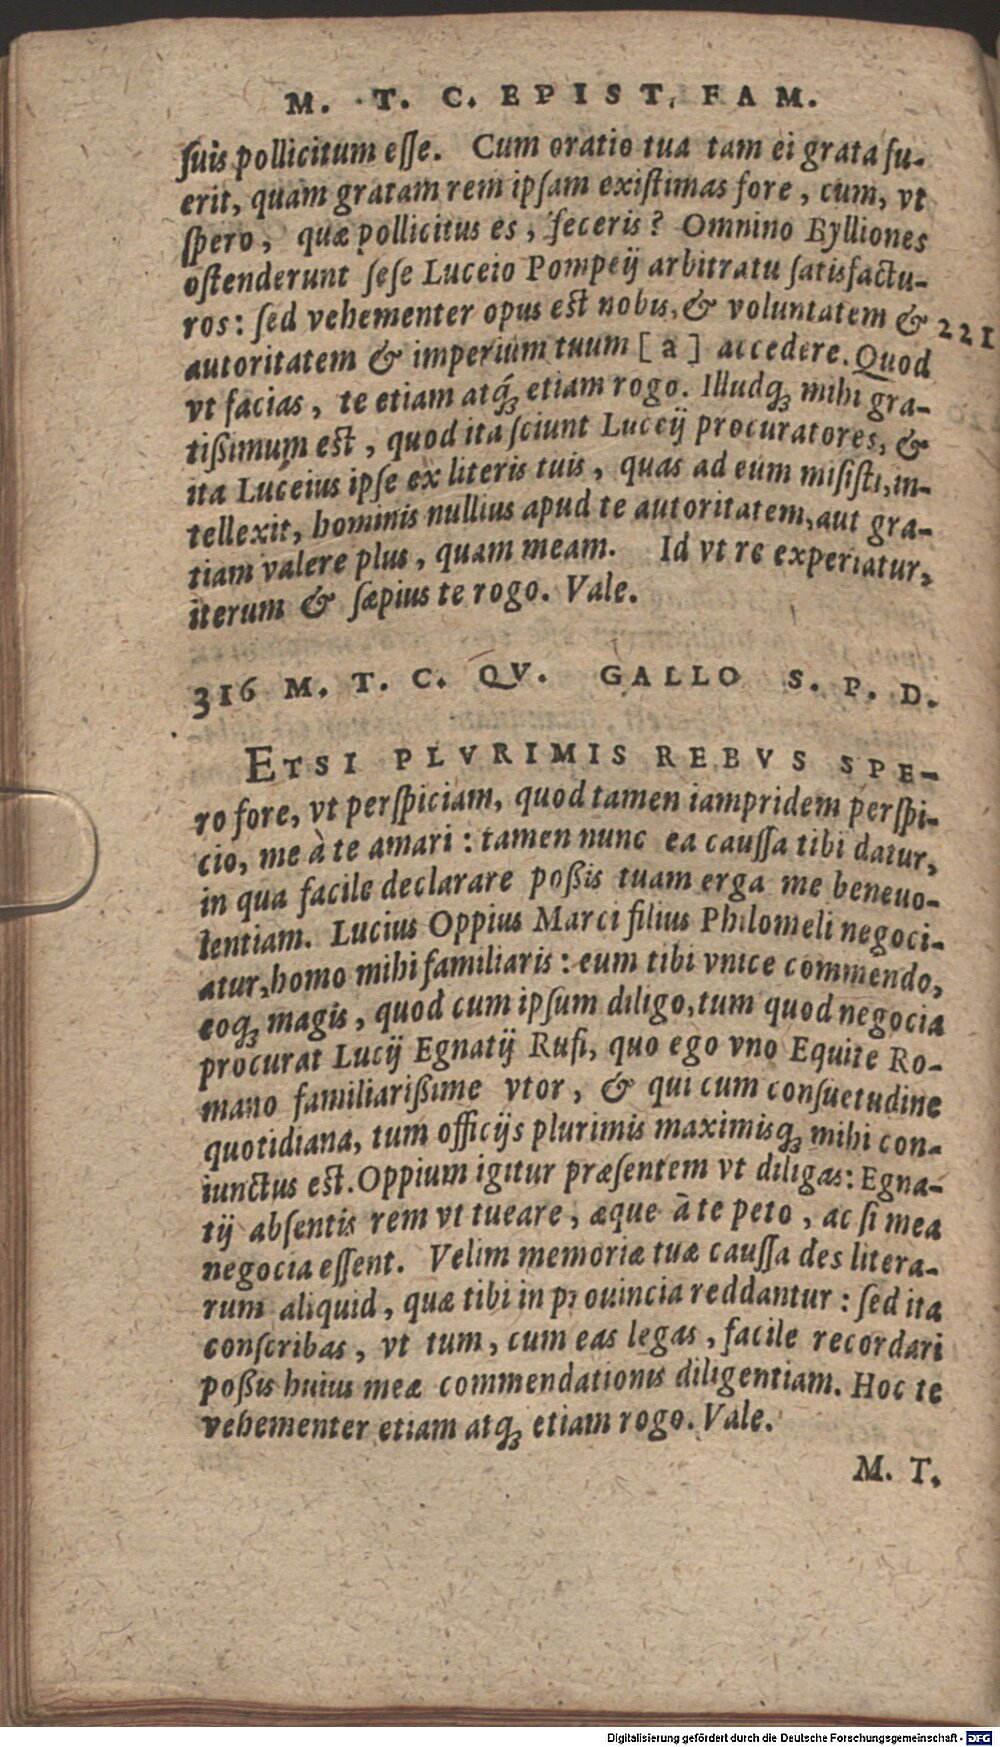 M. T. C. EPIST. FAM.
ſuis pollicitum eſſe. Cum oratio tua tam ei grata fu-
erit, quàm gratam rem ipſam exiſtimas fore, cum, vt
ſpero, quæ pollicitus es, feceris? Omnino Bylliones
oſtenderunt ſeſe Luceio Pompeij arbitratu ſatisfactu-
ros: ſed vehementer opus eſt nobis, & voluntatem &
221
autoritatem & imperium tuum [a] accedere. Quod
vt facias, te etiam atq́ꝫ etiam rogo. Illudqꝫ mihi gra-
tißimum eſt, quod ita ſciunt Luceij procuratores, &
ita Luceius ipſe ex literis tuis, quas ad eum miſiſti, in-
tellexit, hominis nullius apud te autoritatem, aut gra-
tiam valere plus, quam meam. Id vt re experiatur,
iterum & ſæpius te rogo. Vale.
316 M. T. C. QV. GALLO S. P. D.
ETSI PLVRIMIS REBVS SPE-
ro fore, vt perſpiciam, quod tamen iampridem perſpi-
cio, me à te amari: tamen nunc ea cauſſa tibi datur,
in qua facile declarare poßis tuam erga me beneuo-
lentiam. Lucius Oppius Marci filius Philomeli negoci-
atur, homo mihi familiaris: eum tibi vnice commendo,
eoqꝫ magis, quod cum ipſum diligo, tum quod negocia
procurat Lucij Egnatij Rufi, quo ego vno Equite Ro-
mano familiarißime vtor, & qui cum conſuetudine
quotidiana, tum officijs plurimis maximisqꝫ mihi con-
iunctus eſt. Oppium igitur præſentem vt diligas: Egna-
tij abſentis rem vt tueare, æque à te peto, ac ſi mea
negocia eſſent. Velim memoriæ tuæ cauſſa des litera-
rum aliquid, quæ tibi in prouincia reddantur: ſed ita
conſcribas, vt tum, cum eas legas, facile recordari
poßis huius meæ commendationis diligentiam. Hoc te
vehementer etiam atqꝫ etiam rogo. Vale.
M. T.
Digitalisierung gefördert durch die Deutsche Forschungsgemeinschaft - DFG